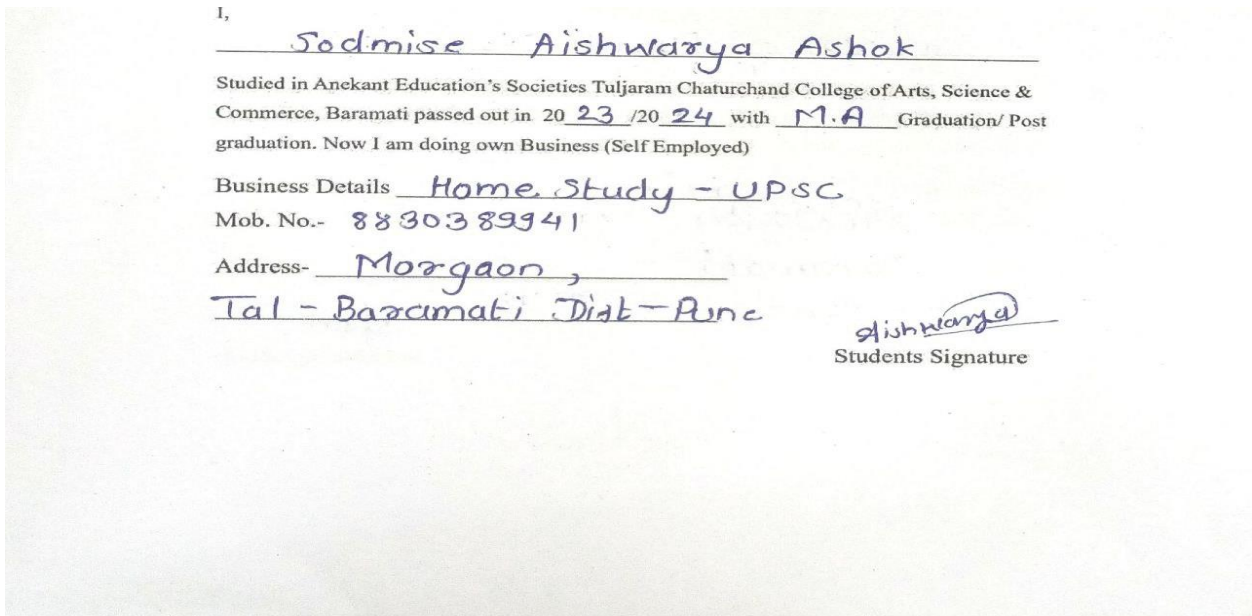 I,
Sodmise Aishwarya Ashok
Studied in Anekant Education's Societies Tuljaram Chaturchand College of Arts, Science &
Commerce, Baramati passed out in 20 23 /20 24 with M.A Graduation/ Post
graduation. Now I am doing own Business (Self Employed)
Business Details Home Study - UPSC
Mob. No.- 8830389941
Address- Morgaon,
Tal - Baramati Dist - Pune
Aishwarya
Students Signature